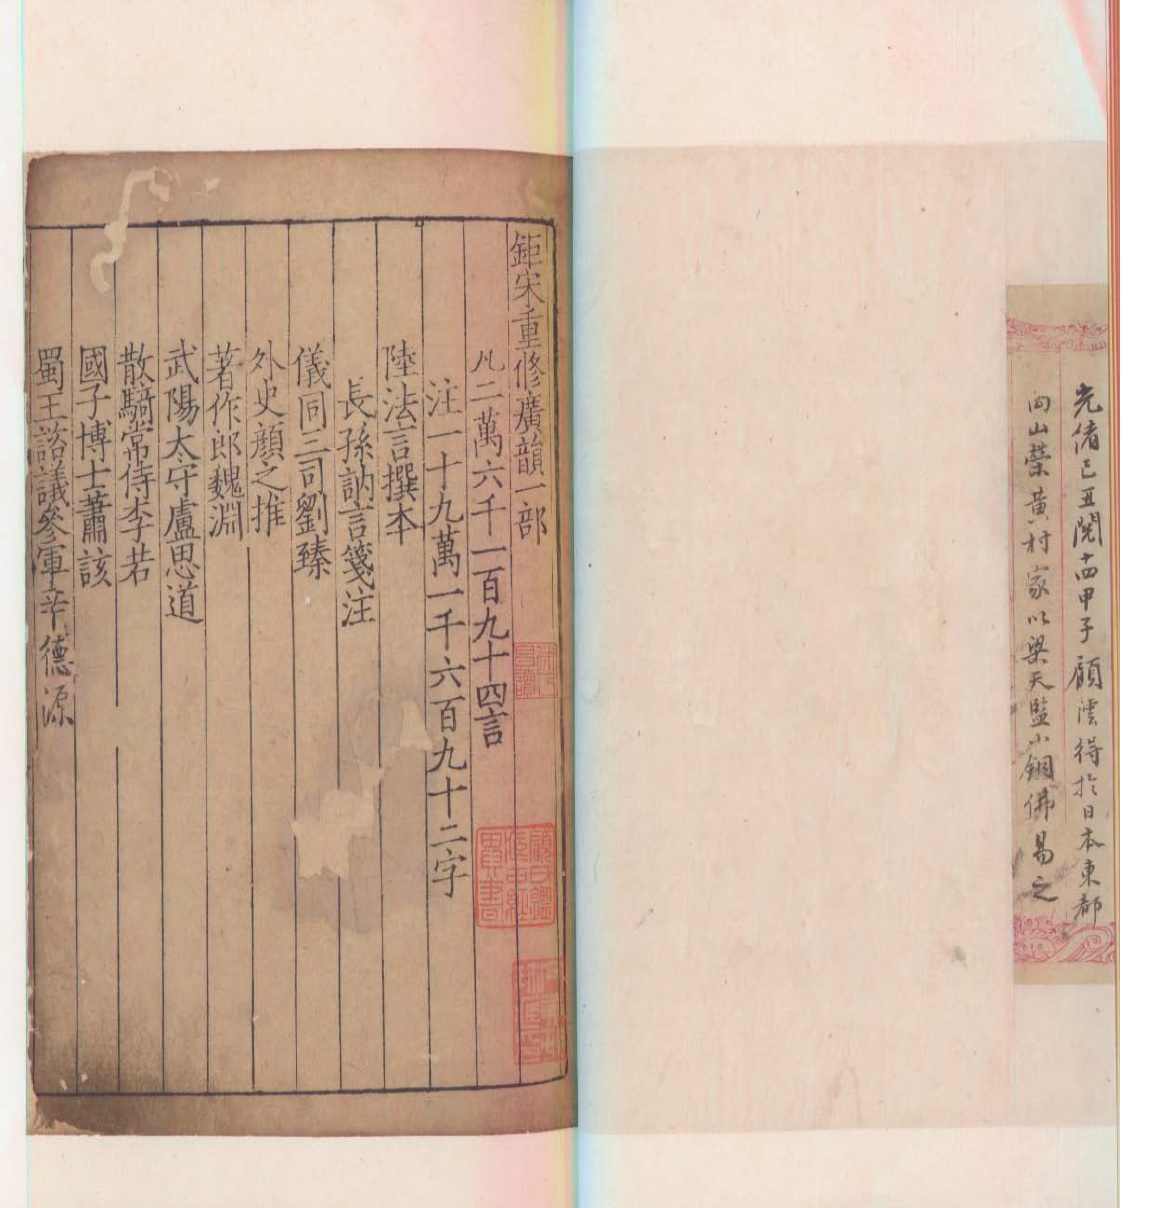 光緒己丑閏十四甲子顧澐得於日本東都
向山榮黃村家以梁天監小銅佛易之
鉅宋重修廣韻一部
凡二萬六千一百九十四言
注一十九萬一千六百九十二字
陸法言撰本
長孫訥言箋注
儀同三司劉臻
外史顏之推
著作郎魏淵
武陽太守盧思道
散騎常侍李若
國子博士蕭該
蜀王諮議參軍辛德源